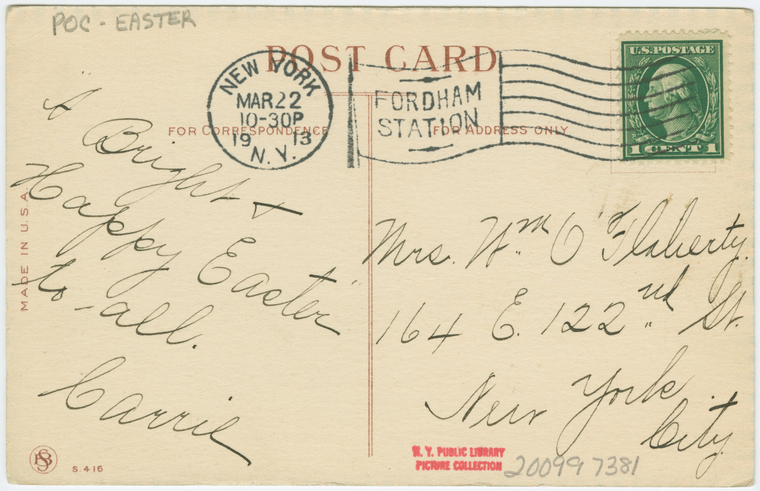 POC - EASTER
POST CARD
NEW YORK
MAR 22
10-30P
1913
N.Y.
FORDHAM
STATION
U.S. POSTAGE
1 CENT 1
FOR CORRESPONDENCE
FOR ADDRESS ONLY
"A Bright &
Happy Easter"
to-all.
Carrie
Mrs. Wm. O'Flaherty.
164 E. 122nd St.
New York
City.
MADE IN U.S.A.
S. 416
N. Y. PUBLIC LIBRARY
PICTURE COLLECTION
200997381